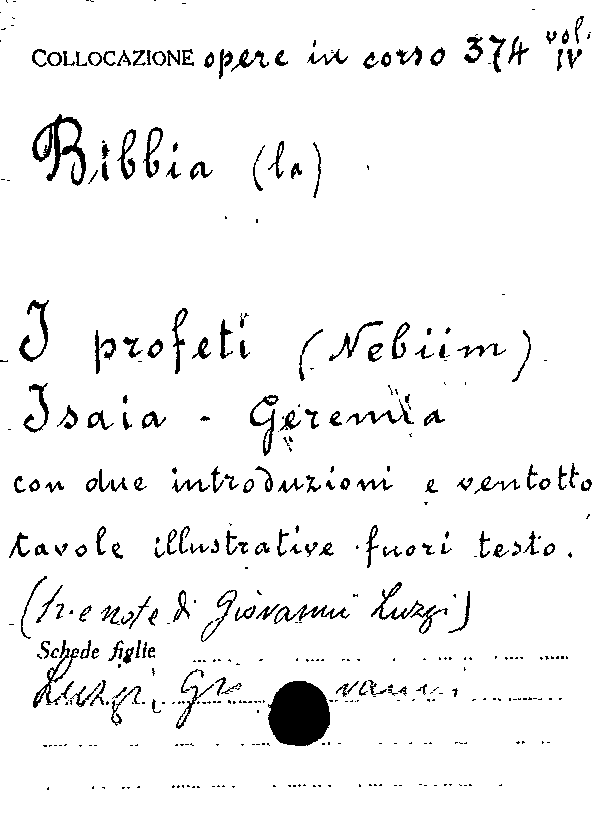 COLLOCAZIONE opere in corso 374 vol. IV
Bibbia (la)
I profeti (Nebiim)
Isaia - Geremia
con due introduzioni e ventotto
tavole illustrative fuori testo.
(tr. e note di Giovanni Luzzi)
Schede figlie
Luzzi, Gio vanni